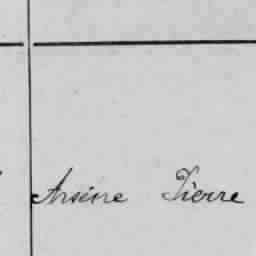 Arsène Pierre